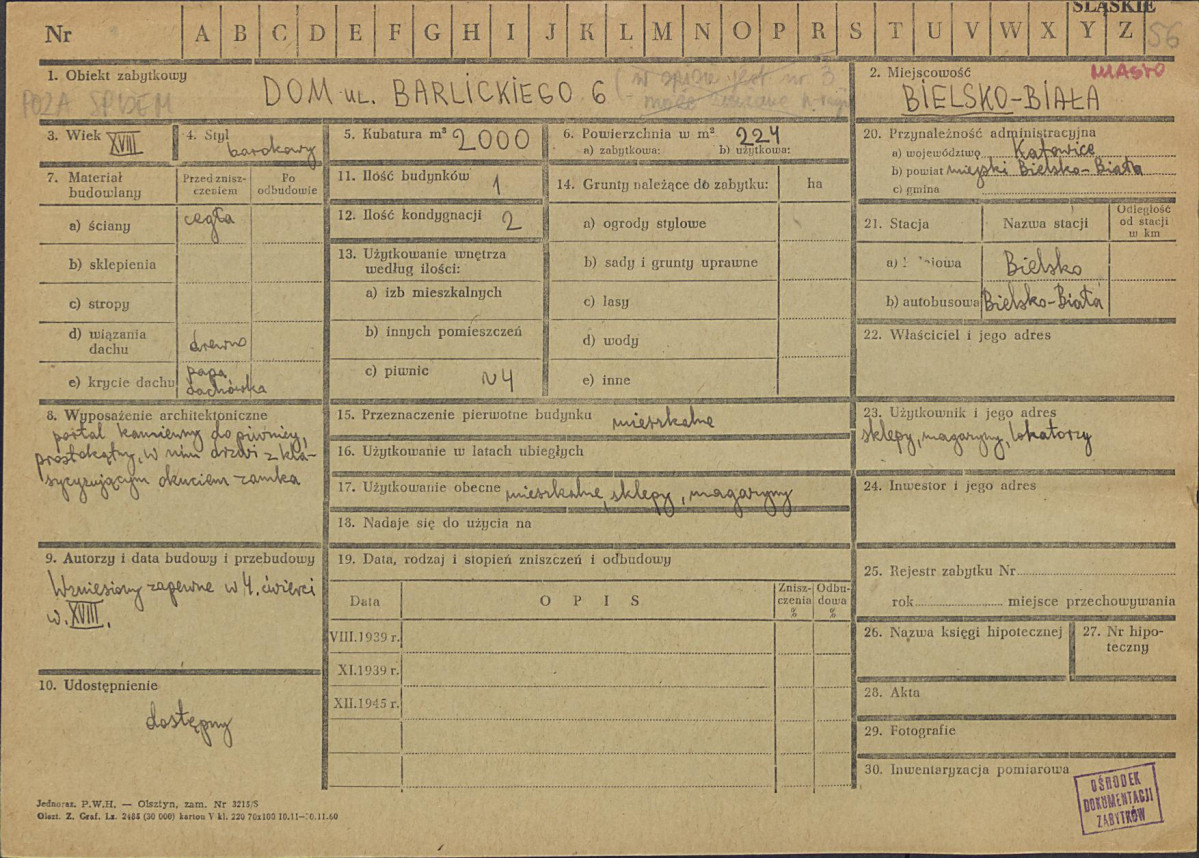 ŚLĄSKIE
Nr A B C D E F G H I J K L M N O P R S T U V W X Y Z 56
1. Obiekt zabytkowy
POZA SPISEM
DOM ul. BARLICKIEGO 6
(w spisie jest nr 3
2. Miejscowość
MIASTO
BIELSKO-BIAŁA
3. Wiek XVIII
4. Styl barokowy
5. Kubatura m³ 2000
6. Powierzchnia w m² 224
a) zabytkowa: b) użytkowa:
20. Przynależność administracyjna
a) województwo Katowice
b) powiat miejski Bielsko-Biała
c) gmina
7. Materiał budowlany
Przed zniszczeniem
Po odbudowie
a) ściany cegła
b) sklepienia
c) stropy
d) wiązania dachu drewno
e) krycie dachu papa dachówka
11. Ilość budynków 1
12. Ilość kondygnacji 2
13. Użytkowanie wnętrza
według ilości:
a) izb mieszkalnych
b) innych pomieszczeń
c) piwnic N4
14. Grunty należące do zabytku: ha
a) ogrody stylowe
b) sady i grunty uprawne
c) lasy
d) wody
e) inne
21. Stacja Nazwa stacji Odległość od stacji w km
a) Bielsko
b) autobusowa Bielsko-Biała
22. Właściciel i jego adres
8. Wyposażenie architektoniczne
portal kamienny do piwnicy,
prostokątny, w nim drzwi z kla-
sycyzującym okuciem zamka
15. Przeznaczenie pierwotne budynku mieszkalne
16. Użytkowanie w latach ubiegłych
17. Użytkowanie obecne mieszkalne, sklepy, magazyny
18. Nadaje się do użycia na
23. Użytkownik i jego adres
sklepy, magazyny, lokatorzy
24. Inwestor i jego adres
9. Autorzy i data budowy i przebudowy
Wzniesiony zapewne w 4. ćwierci
w. XVIII.
19. Data, rodzaj i stopień zniszczeń i odbudowy
Data OPIS Zniszczenia % Odbudowa %
VIII.1939 r.
XI.1939 r.
XII.1945 r.
25. Rejestr zabytku Nr
rok miejsce przechowywania
26. Nazwa księgi hipotecznej
27. Nr hipoteczny
10. Udostępnienie
dostępny
28. Akta
29. Fotografie
30. Inwentaryzacja pomiarowa
OŚRODEK
DOKUMENTACJI
ZABYTKÓW
Jednoraz. P.W.H. — Olsztyn, zam. Nr 3215/S
Olszt. Z. Graf. Lz. 2485 (30 000) karton V kl. 220 70x100 10.11—30.11.60